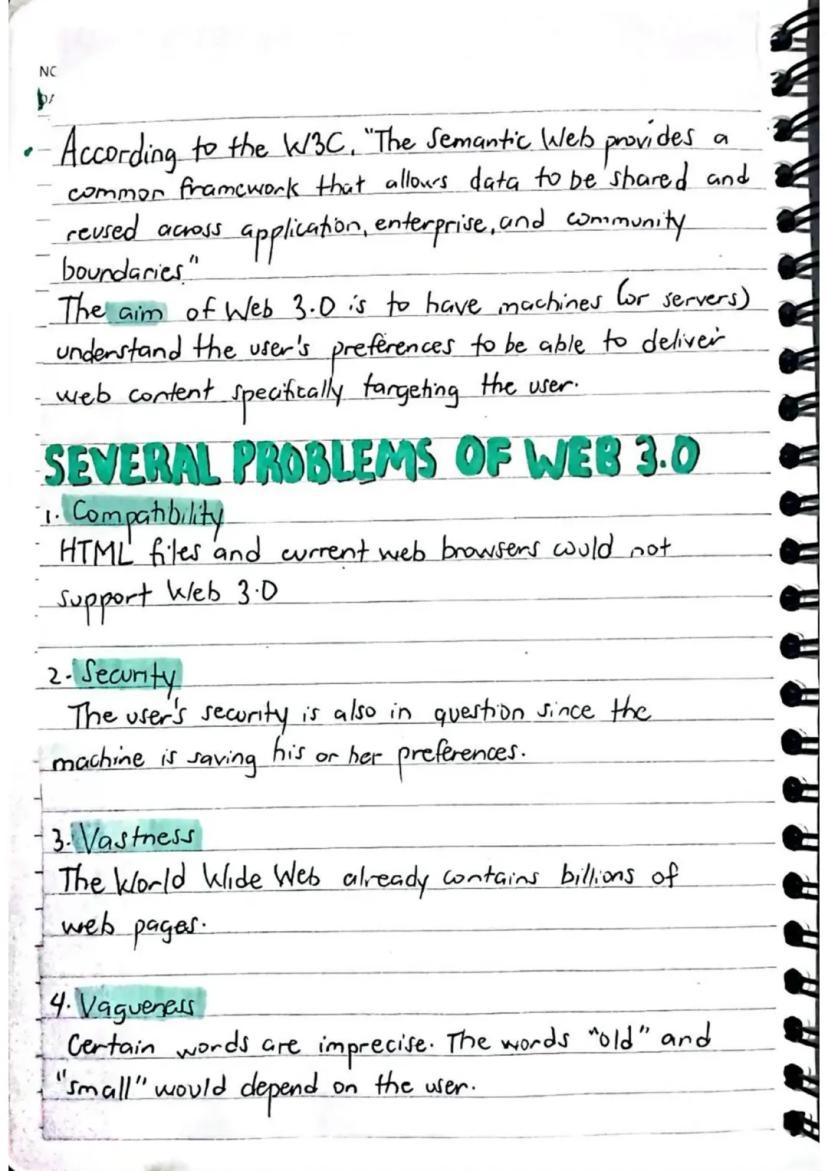 NO
D/
• According to the W3C, "The Semantic Web provides a
common framework that allows data to be shared and
reused across application, enterprise, and community
boundaries."
The aim of Web 3.0 is to have machines (or servers)
understand the user's preferences to be able to deliver
web content specifically targeting the user.
SEVERAL PROBLEMS OF WEB 3.0
1. Compatibility
HTML files and current web browsers could not
support Web 3.0
2. Security
The user's security is also in question since the
machine is saving his or her preferences.
3. Vastness
The World Wide Web already contains billions of
web pages.
4. Vagueness
Certain words are imprecise. The words "old" and
"small" would depend on the user.